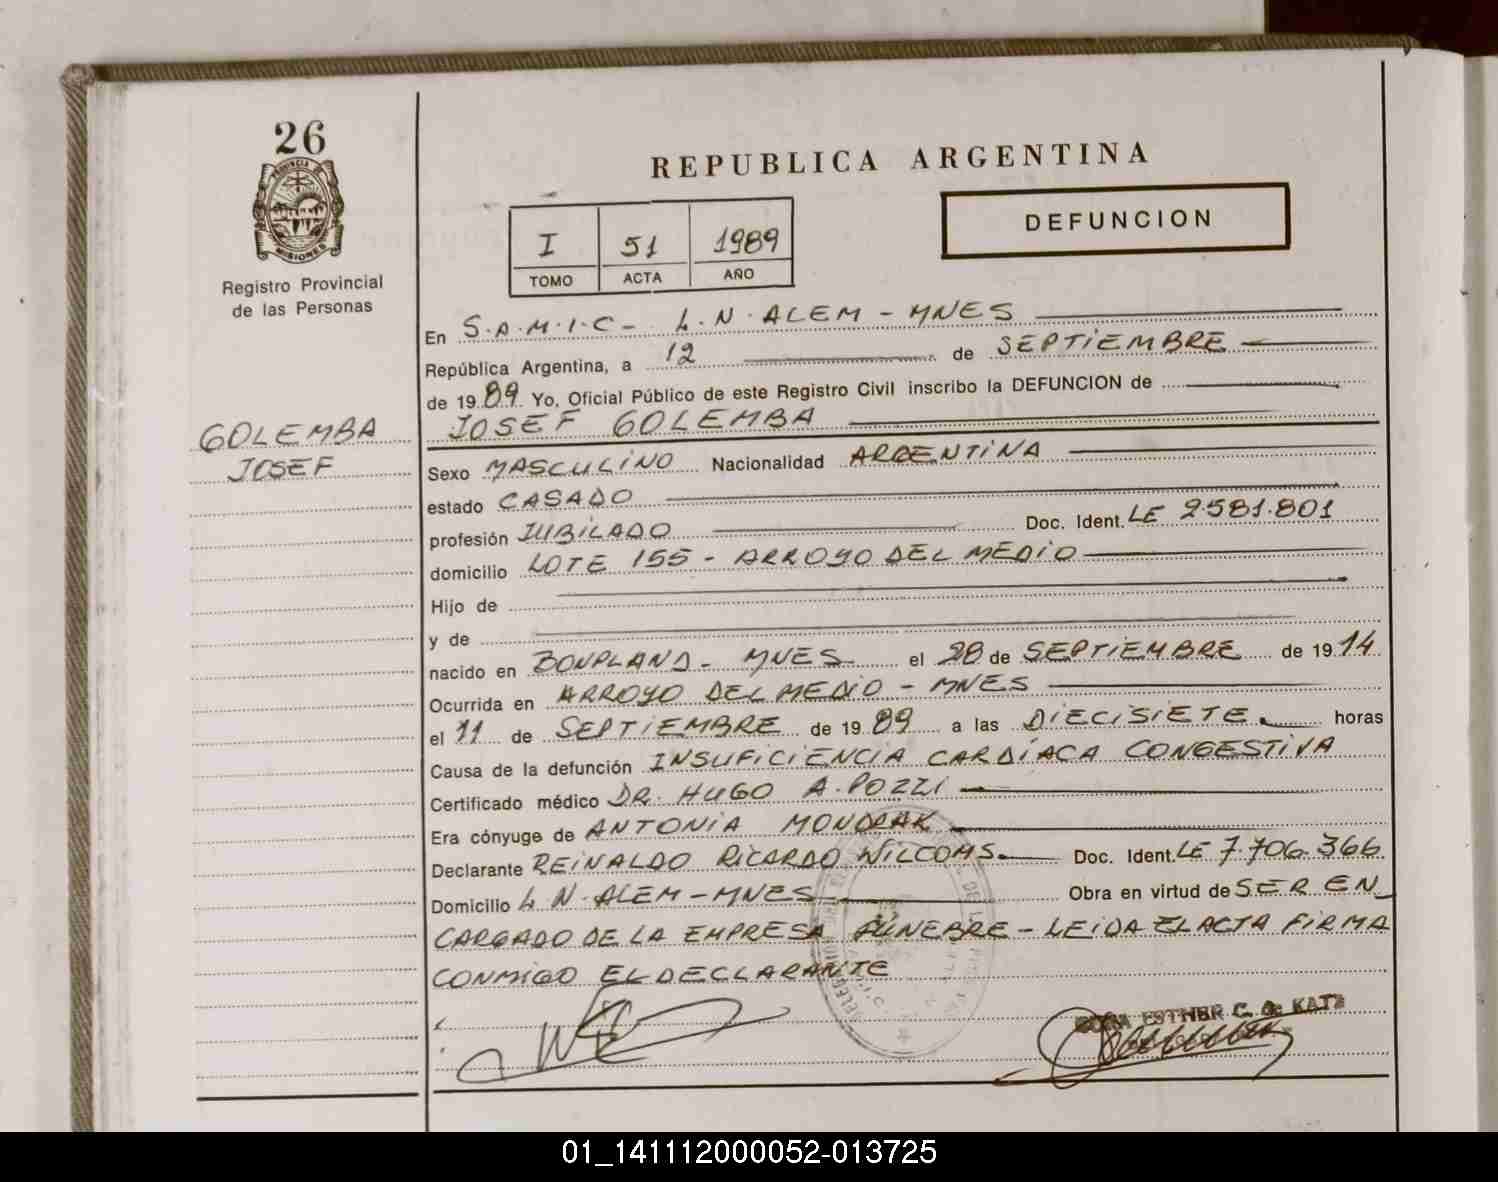 26
PROVINCIA DE
MISIONES
Registro Provincial
de las Personas
GOLEMBA
JOSEF
REPUBLICA ARGENTINA
I 51 1989
TOMO ACTA AÑO
DEFUNCION
En S.A.M.I.C- L.N.ALEM - MNES
República Argentina, a 12 de SEPTIEMBRE
de 1989 Yo, Oficial Público de este Registro Civil inscribo la DEFUNCION de
JOSEF GOLEMBA
Sexo MASCULINO Nacionalidad ARGENTINA
estado CASADO
profesión JUBILADO Doc. Ident. LE 2.581.801
domicilio LOTE 155 - ARROYO DEL MEDIO
Hijo de
y de
nacido en BONPLAND - MNES el 28 de SEPTIEMBRE de 1914
Ocurrida en ARROYO DEL MEDIO - MNES
el 11 de SEPTIEMBRE de 1989 a las DIECISIETE horas
Causa de la defunción INSUFICIENCIA CARDÍACA CONGESTIVA
Certificado médico DR. HUGO A. POZZI
Era cónyuge de ANTONIA
Declarante REINALDO RICARDO WILCOMS Doc. Ident. LE 7.706.366
Domicilio L.N.ALEM - MNES Obra en virtud de SER EN_
CARGADO DE LA EMPRESA FÚNEBRE - LEIDA EL ACTA FIRMA
CONMIGO EL DECLARANTE
ESTHER C. de KATZ
01_141112000052-013725